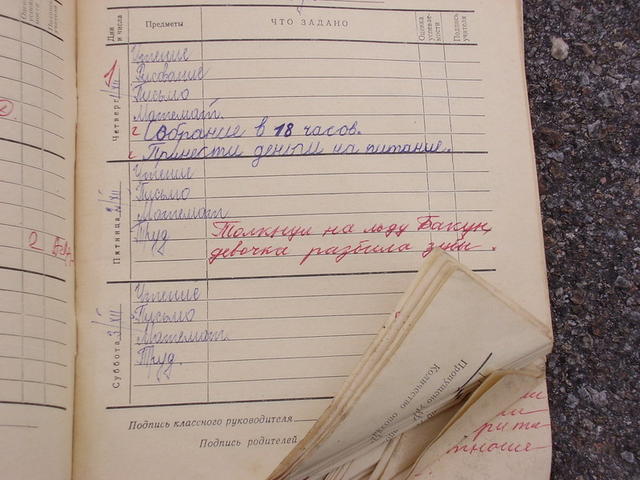 Дни и числа Предметы ЧТО ЗАДАНО Оценка успеваемости Подпись учителя
Четверг 1/XII
Чтение
Рисование
Письмо
Математ.
Собрание в 18 часов.
Принести деньги на питание.
Пятница 2/XII
Чтение
Письмо
Математ
Труд Толкнул на льду
девочка разбила зубы.
Суббота 3/XII
Чтение
Письмо
Математ.
Труд.
Подпись классного руководителя
Подпись родителей
Пропущено
Количество
2